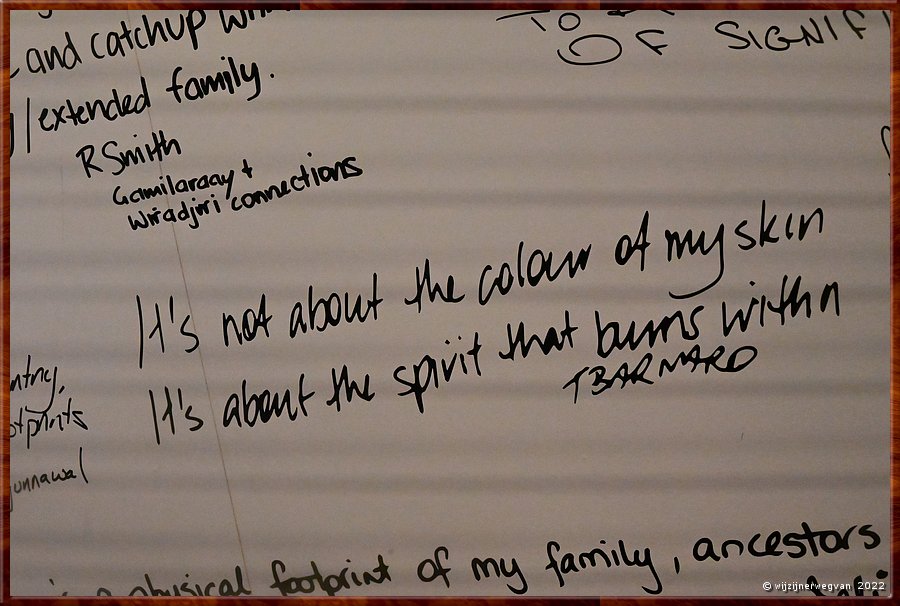 and catchup
TO
OF SIGNIF
/extended family.
R Smith
Gamilaraay +
Wiradjiri connections
It's not about the colour of my skin
It's about the spirit that burns within
TBARNARD
ntry,
otprints
unnawal
physical footprint of my family, ancestors
© wijzijnerwegvan 2022